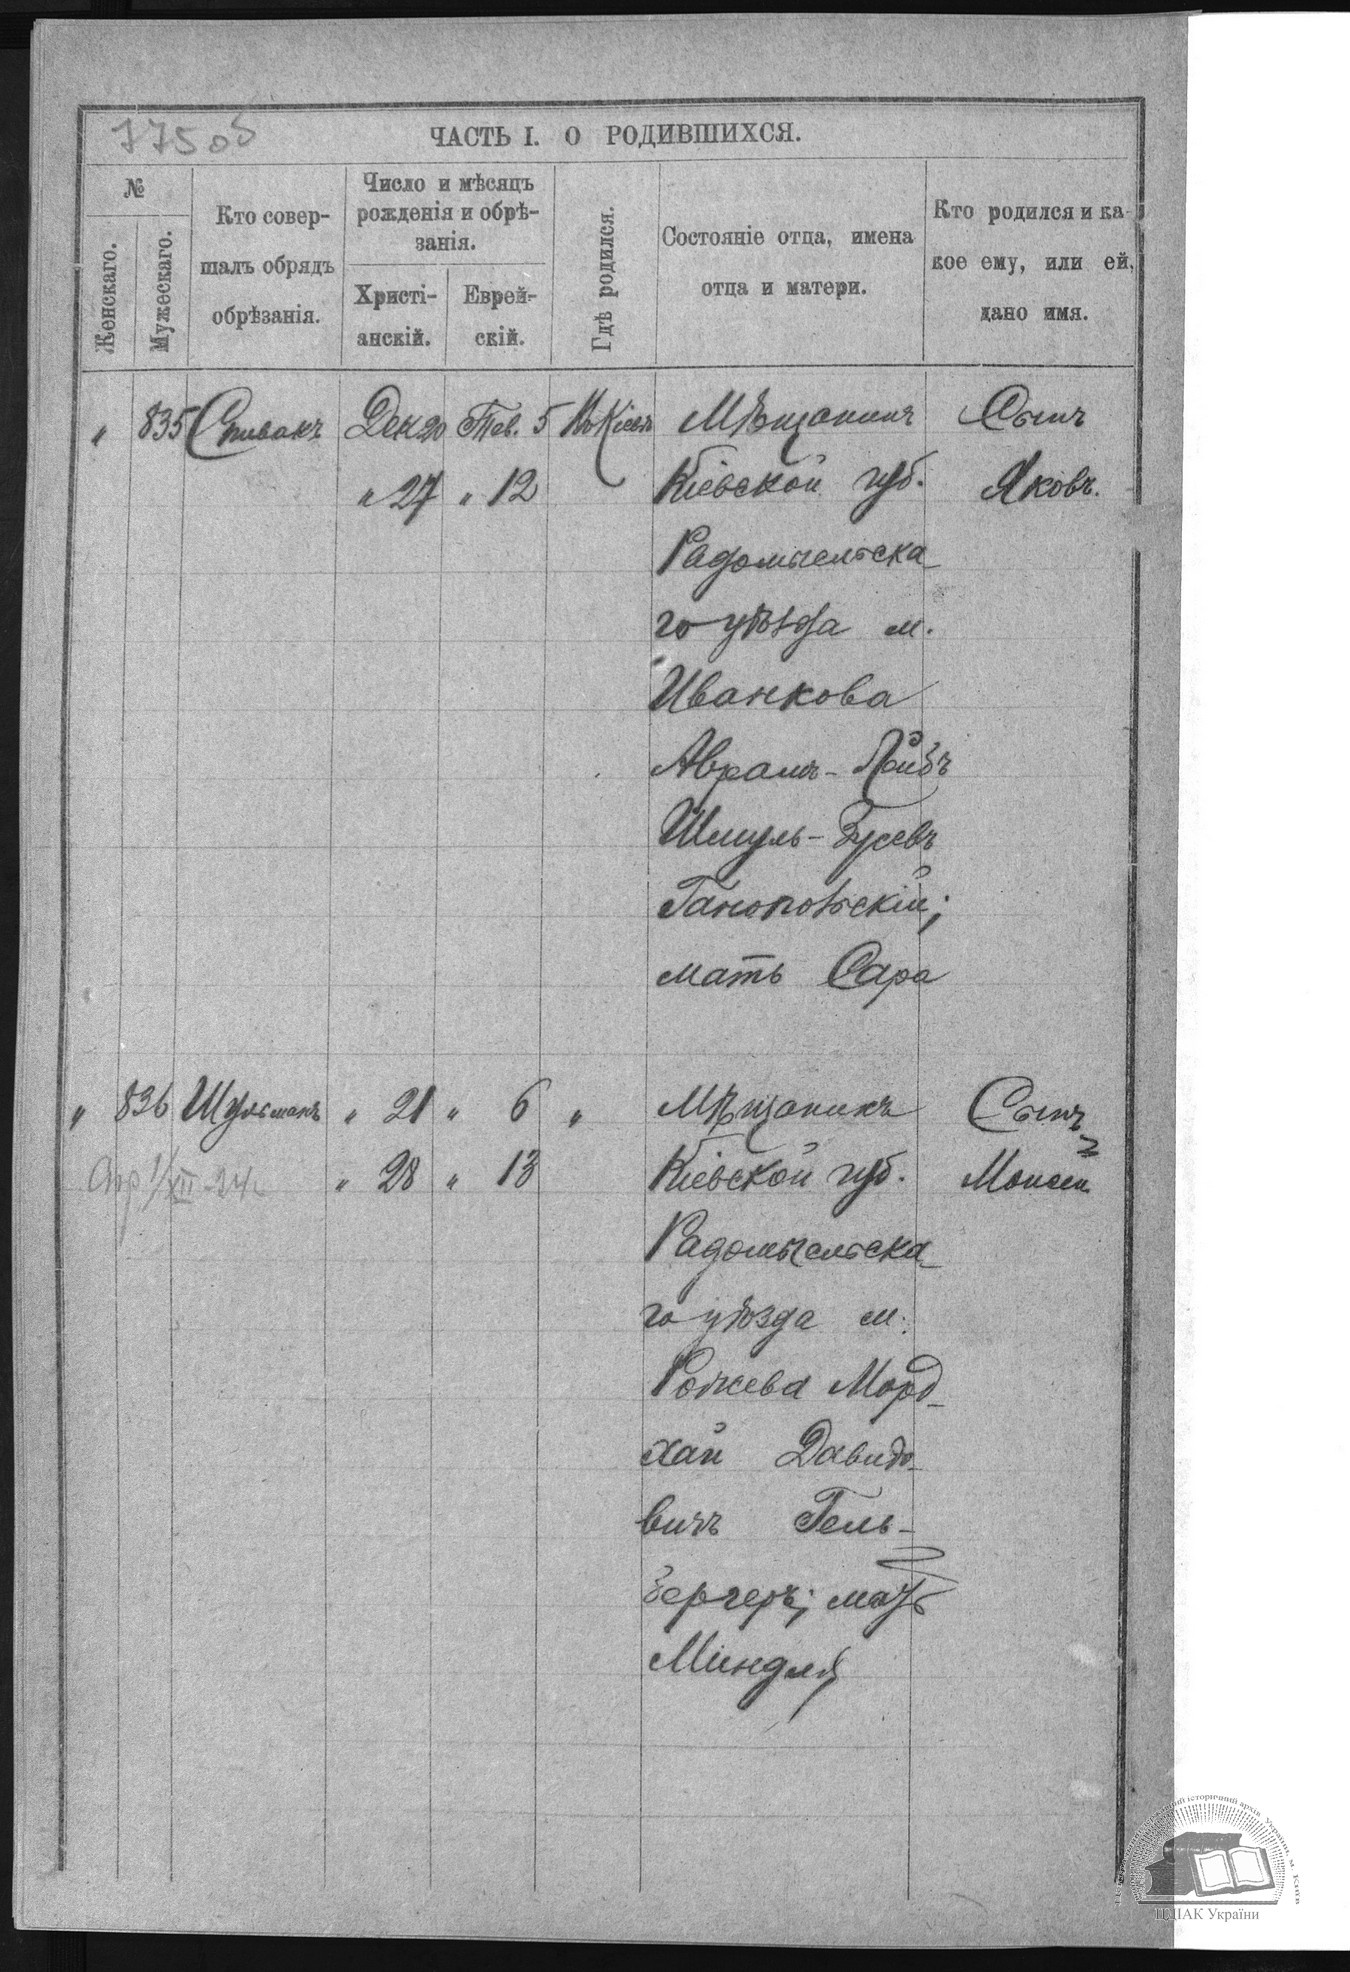 775 об
ЧАСТЬ I. О РОДИВШИХСЯ.
№
Женскаго.
Мужескаго.
Кто совер-
шалъ обрядъ
обрѣзанія.
Число и мѣсяцъ
рожденія и обрѣ-
занія.
Христі-
анскій.
Еврей-
скій.
Гдѣ родился.
Состояніе отца, имена
отца и матери.
Кто родился и ка-
кое ему, или ей,
дано имя.
" 835 Спивакъ Дек 20 Тев. 5 Въ Кіевѣ Мѣщанинъ Сынъ
" 27 " 12 Кіевской губ. Яковъ.
Радомысльска-
го уѣзда м.
Иванкова
Аврамъ-Лейбъ
Шмуль-Зусевъ
мать Сара
" 836 Шульманъ " 21 " 6 " Мѣщанинъ Сынъ
" 28 " 13 Кіевской губ. Моисей
Радомысльска-
го уѣзда м.
Рожева Морд-
хай Давидо-
вичъ Гель-
бергеръ; мать
Миндля
ЦДІАК України